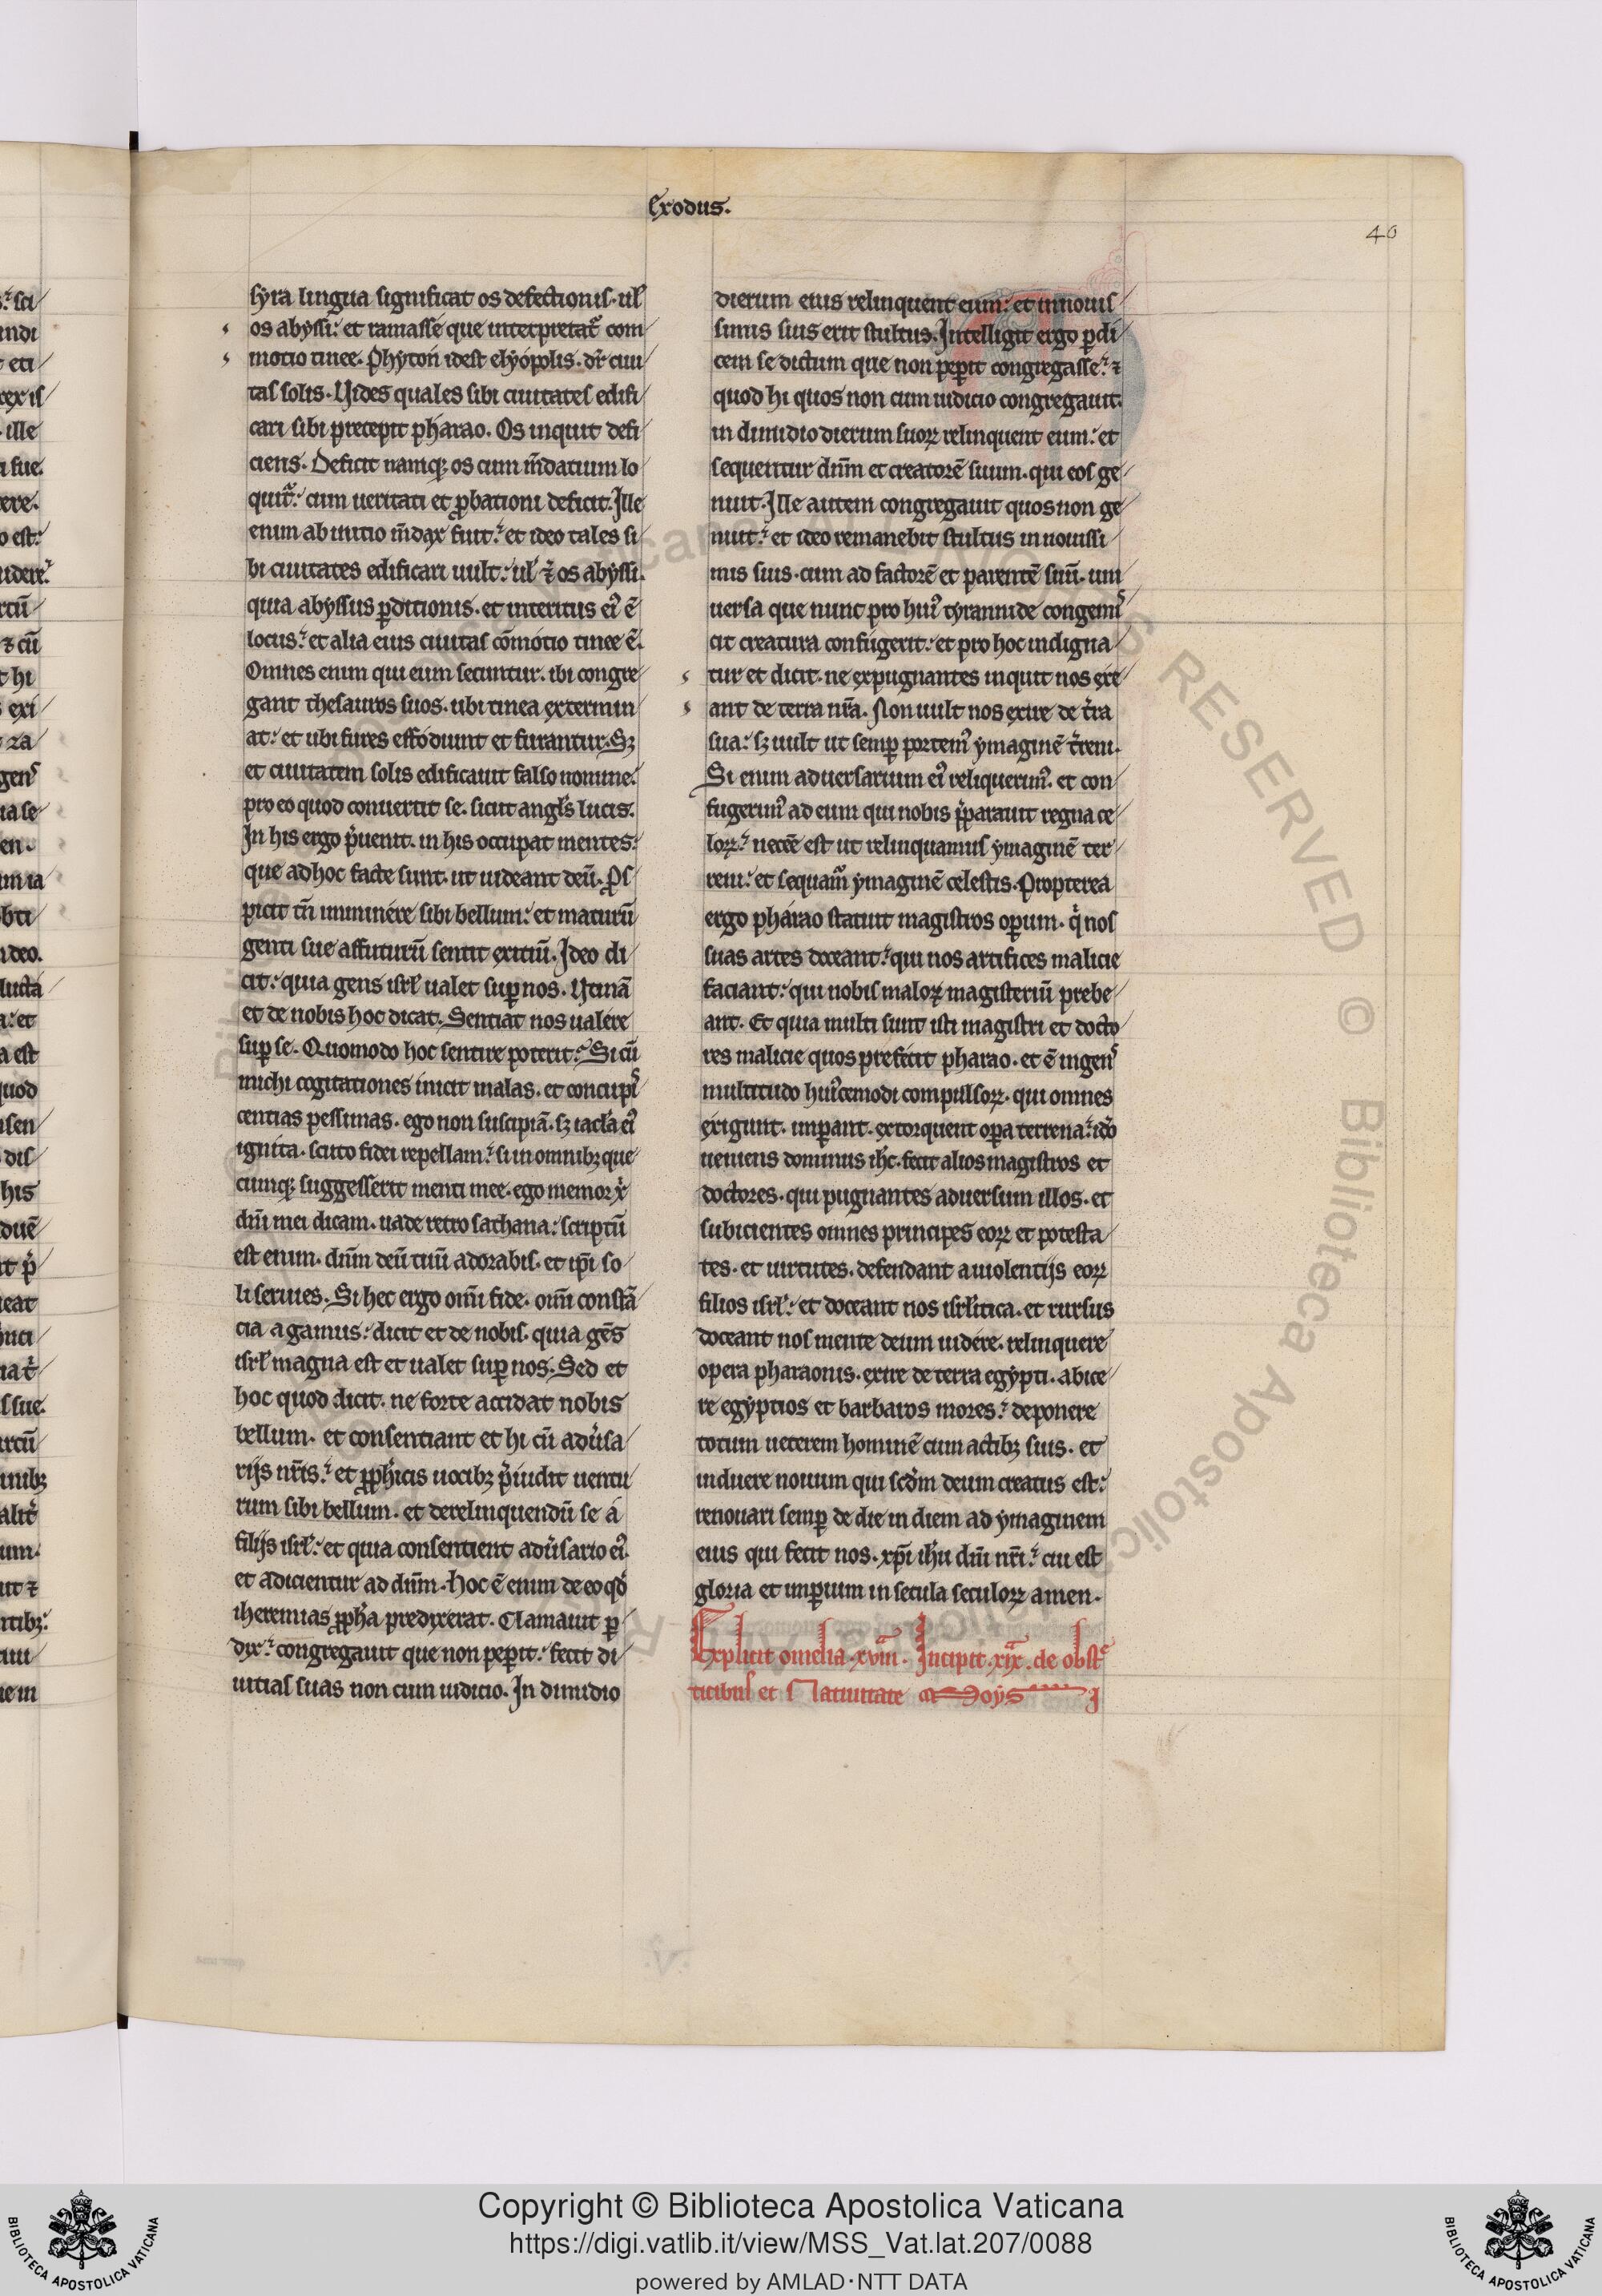 Exodus.
40
syra lingua significat os defectionis. ul̕
os abyssi: et ramasse que interpretat᷑ com
motio tinee. Phyton̄ idest elyópolis. dr̄ ciui
tas solis. Vides quales sibi ciuitates edifi
cari sibi precepit phárao. Os inquit defi
ciens. Deficit namq; os cum m̄datium lo
quit᷑: cum ueritati et ꝓbationi deficit. Ille
enim ab initio m̄dax fuit: et ideo tales si
bi ciuitates edificari uult: ul̕ ⁊ os abyssi.
quia abyssus ꝑditionis. et interitus ei᷒ ē
locus: et alia eius ciuitas cōmotio tinee ē.
Omnes enim qui eum secuntur. ibi congre
gant thesauros suos. ubi tinea extermin
at: et ubi fures effodiunt et furantur. Sꝫ
et ciuitatem solis edificauit falso nomine.
pro eo quod conuertit se. sicut angl̕s lucis.
In his ergo p̄uenit. in his occupat mentes:
que ad hoc facte sunt. ut uideant deū. Ꝓs
picit tn̄ imminere sibi bellum: et maturū
genti sue affuturū sentit exitiū. Ideo di
cit: quia gens isrl̕ ualet suꝑ nos. Utinā
et de nobis hoc dicat. Sentiat nos ualere
suꝑ se. Quomodo hoc sentire poterit? Si cū
michi cogitationes inicit malas. et concupi
centias pessimas. ego non suscipiā. sꝫ iacl̕a ei᷒
ignita. scuto fidei repellam: si in omnibꝫ que
cumq; suggesserit menti mee. ego memor xp̄i
dn̄i mei dicam. uade retro sathana: scriptū
est enim. dn̄m deū tuū adorabis. et ip̄i so
li seruies. Si hec ergo om̄i fide. om̄i constā
cia agamus: dicit et de nobis. quia gēs
isrl̕ magna est et ualet suꝑ nos. Sed et
hoc quod dicit. ne forte accidat nobis
bellum. et consentiant et hi cū adu̕sa
rijs nr̄is: et ꝓph̄icis uocibꝫ p̄uidit uentu
rum sibi bellum. et derelinquendū se á
filijs isrl̕: et quia consentient adu̕sario ei᷒.
et adicientur ad dn̄m. Hoc ē enim de eo qd̕
iheremias ꝓph̄a predixerat. Clamauit ꝑ
dix: congregauit que non peperit: fecit di
uitias suas non cum iudicio. In dimidio
dierum eius relinquent eum: et in nouis
simis suis erit stultus. Intelligit ergo ꝑdi
cem se dictum que non peꝑit congregasse: ⁊
quod hi quos non cum iudicio congregauit.
in dimidio dierum suoꝝ relinquent eum: et
sequentur dn̄m et creatorē suum. qui eos ge
nuit. Ille autem congregauit quos non ge
nuit: et ideo remanebit stultus in nouissi
mis suis. cum ad factorē et parentē suū. uni
uersa que nunc pro hui᷒ tyrannide congemi
cit creatura confugerit: et pro hoc indigna
tur et dicit. ne expugnantes inquit nos exe
ant de terra nr̄a. Non uult nos exire de t̕ra
sua: sꝫ uult ut semꝑ portem᷒ ymaginē t̕reni.
Si enim aduersarium ei᷒ reliquerim᷒. et con
fugerim᷒ ad eum qui nobis p̄parauit regna ce
loꝝ: necē est ut relinquamus ymaginē ter
reni: et sequam᷒ ymaginē celestis. Propterea
ergo phárao statuit magistros oꝑum. q̇ nos
suas artes doceant: qui nos artifices malicie
faciant: qui nobis maloꝝ magisteriū prebe
ant. Et quia multi sunt isti magistri et docto
res malicie quos prefecit pharao. et ē ingens
multitudo hui᷒cemodi compulsoꝝ. qui omnes
exigunt. imꝑant. extorquent oꝑa terrena: ido̕
ueniens dominus ih̄c. fecit alios magistros et
doctores. qui pugnantes aduersum illos. et
subicientes omnes principes eoꝝ et potesta
tes. et uirtutes. defendant a uiolentijs eoꝝ
filios isrl̕: et doceant nos isrl̕itica. et rursus
doceant nos mente deum uidere. relinquere
opera pharaonis. exire de terra egypti. abice
re egyptios et barbaros mores: deponere
totum ueterem hominē cum actibꝫ suis. et
induere nouum qui scd̄m deum creatus est:
renouari semꝑ de die in diem ad ymaginem
eius qui fecit nos. xp̄i ih̄u dn̄i nr̄i: cui est
gloria et imꝑium in secula seculoꝝ amen.
Explicit omelia .xviiia. Incipit .xixa. de obste
ticibus et Natiuitate Moysi
Copyright © Biblioteca Apostolica Vaticana
https://digi.vatlib.it/view/MSS_Vat.lat.207/0088
powered by AMLAD·NTT DATA
BIBLIOTECA APOSTOLICA VATICANA
BIBLIOTECA APOSTOLICA VATICANA